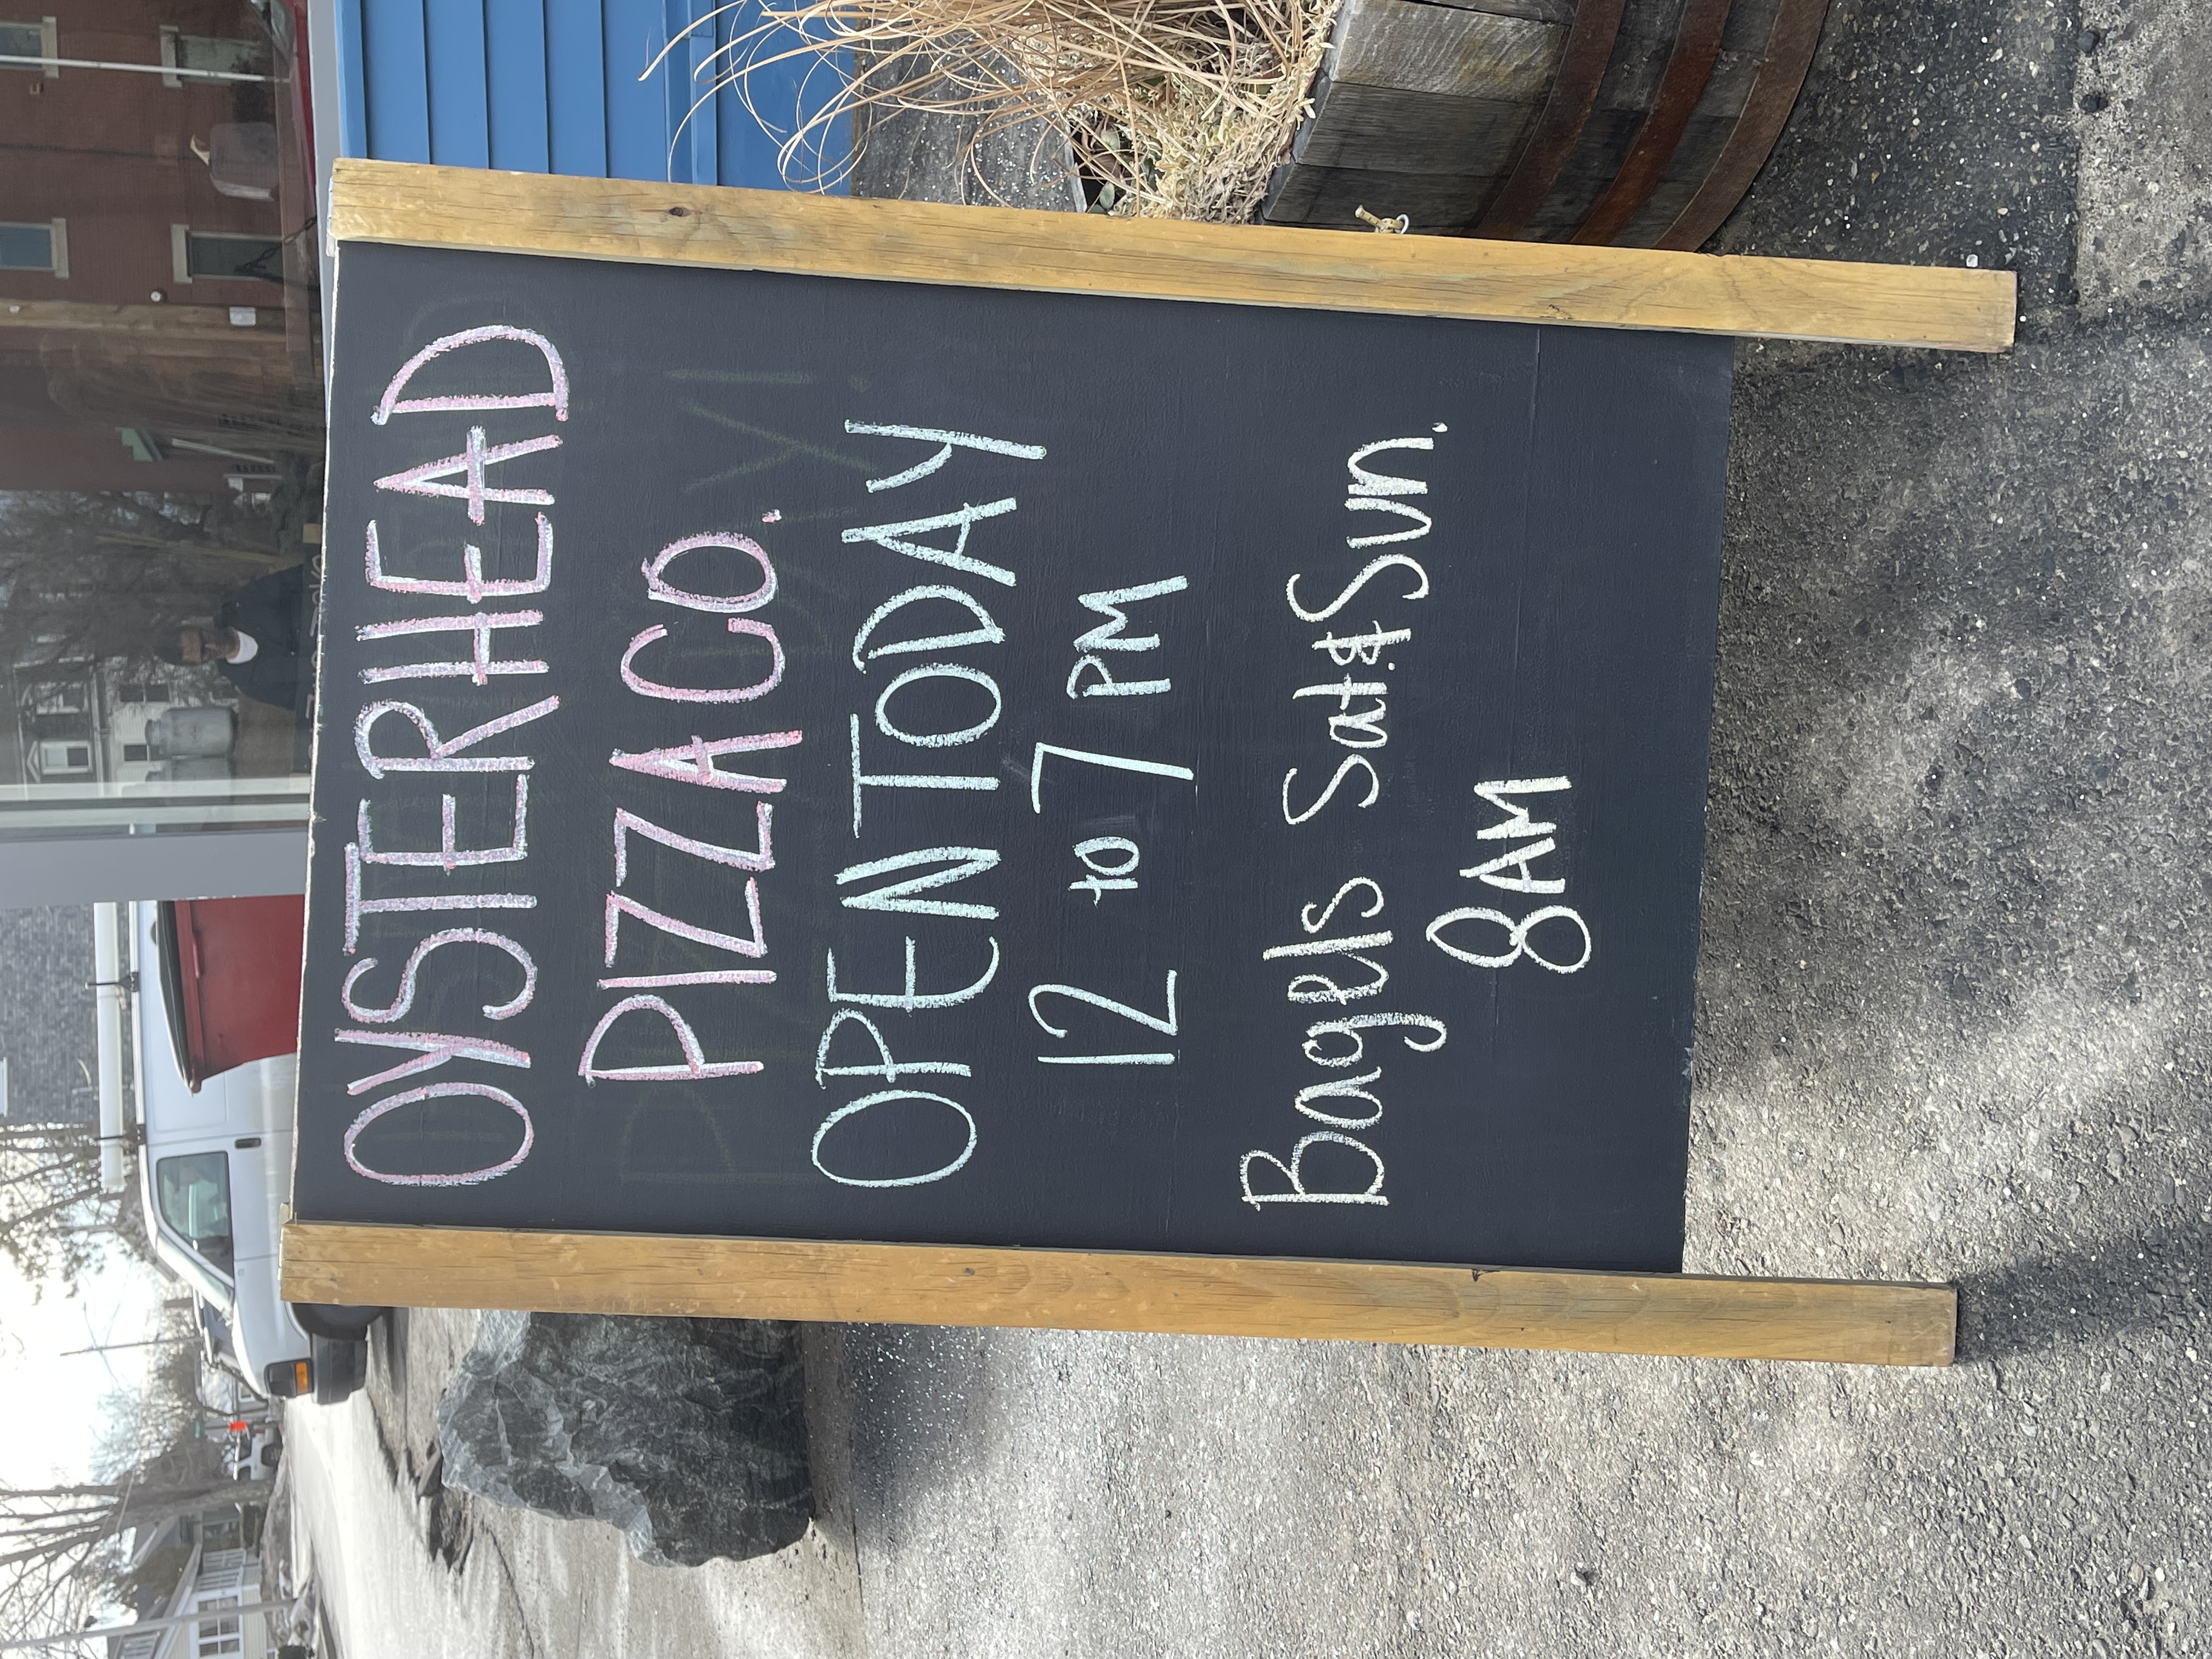 OYSTERHEAD
PIZZA CO.
OPEN TODAY
12 to 7 PM
Bagels Sat & Sun.
8AM